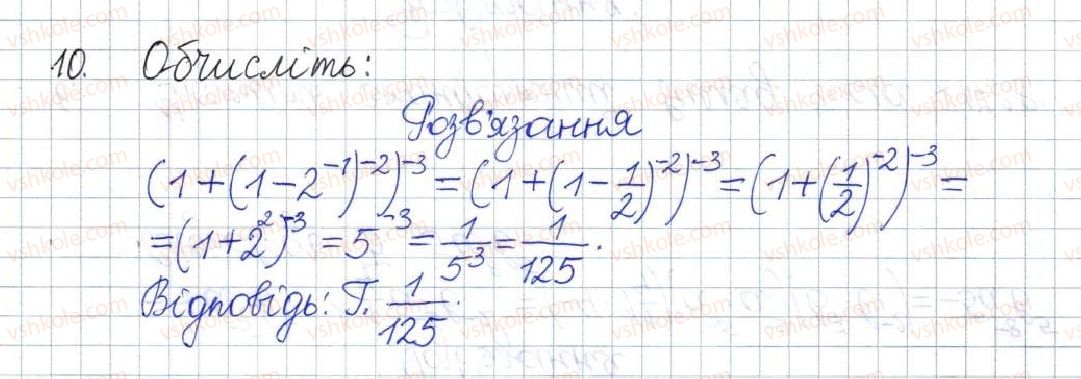 10. Обчисліть:
Розв'язання
(1+(1-2⁻¹)⁻²)⁻³ = (1+(1-1/2)⁻²)⁻³ = (1+(1/2)⁻²)⁻³ =
= (1+2²)⁻³ = 5⁻³ = 1/5³ = 1/125.
Відповідь: Г. 1/125.